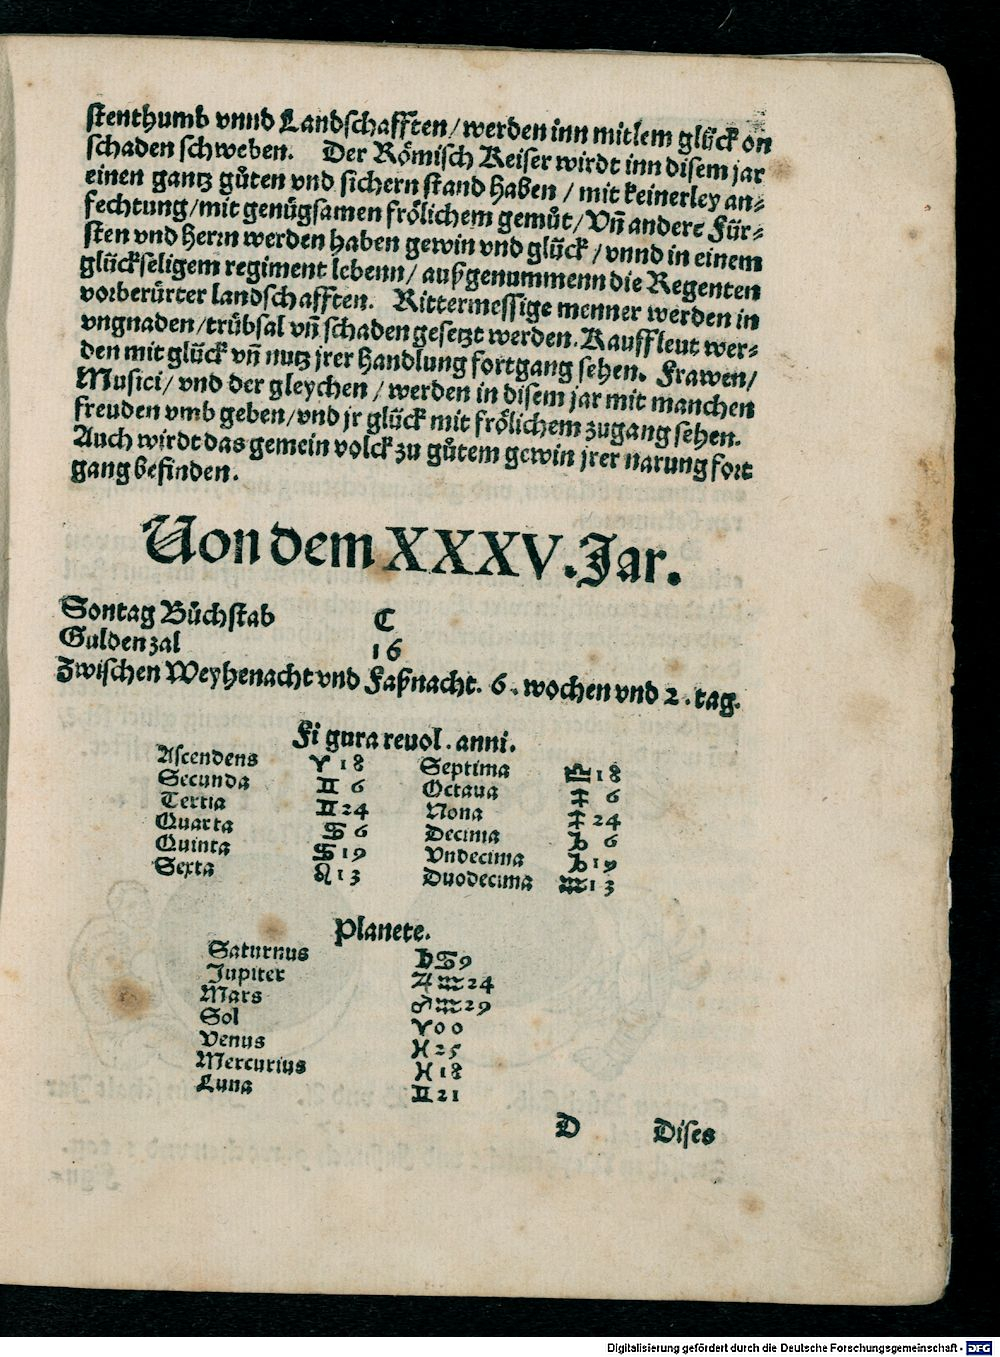 stenthumb vnnd Landschafften/werden inn mitlem glück on
schaden schweben. Der Römisch Keiser wirdt inn disem jar
einen gantz gůten vnd sichern stand haben / mit keinerley an⸗
fechtung/mit genügsamen frölichem gemůt/Vñ andere Für⸗
sten vnd Herrn werden haben gewin vnd glück/vnnd in einem
glückseligem regiment lebenn/außgenummenn die Regenten
vorberürter landschafften. Rittermessige menner werden in
vngnaden/trübsal vñ schaden gesetzt werden. Kauffleut wer⸗
den mit glück vñ nutz jrer Handlung fortgang sehen. Frawen/
Musici/ vnd der gleychen / werden in disem jar mit manchen
freuden vmb geben/vnd jr glück mit frölichem zugang sehen.
Auch wirdt das gemein volck zu gůtem gewin jrer narung fort
gang befinden.
Von dem XXXV. Jar.
Sontag Bůchstab C
Gulden zal 16
Zwischen Weyhenacht vnd Faßnacht. 6. wochen vnd 2. tag.
Figura reuol. anni.
Ascendens ♈ 18 Septima ♎ 18
Secunda ♊ 6 Octaua ♐ 6
Tertia ♊ 24 Nona ♐ 24
Quarta ♋ 6 Decima ♑ 6
Quinta ♋ 19 Vndecima ♑ 19
Sexta ♌ 13 Duodecima ♒ 13
Planete.
Saturnus ♄ ♋ 9
Jupiter ♃ ♒ 24
Mars ♂ ♒ 29
Sol ♈ 00
Venus ♓ 25
Mercurius ♓ 18
Luna ♊ 21
D Dises
Digitalisierung gefördert durch die Deutsche Forschungsgemeinschaft - DFG